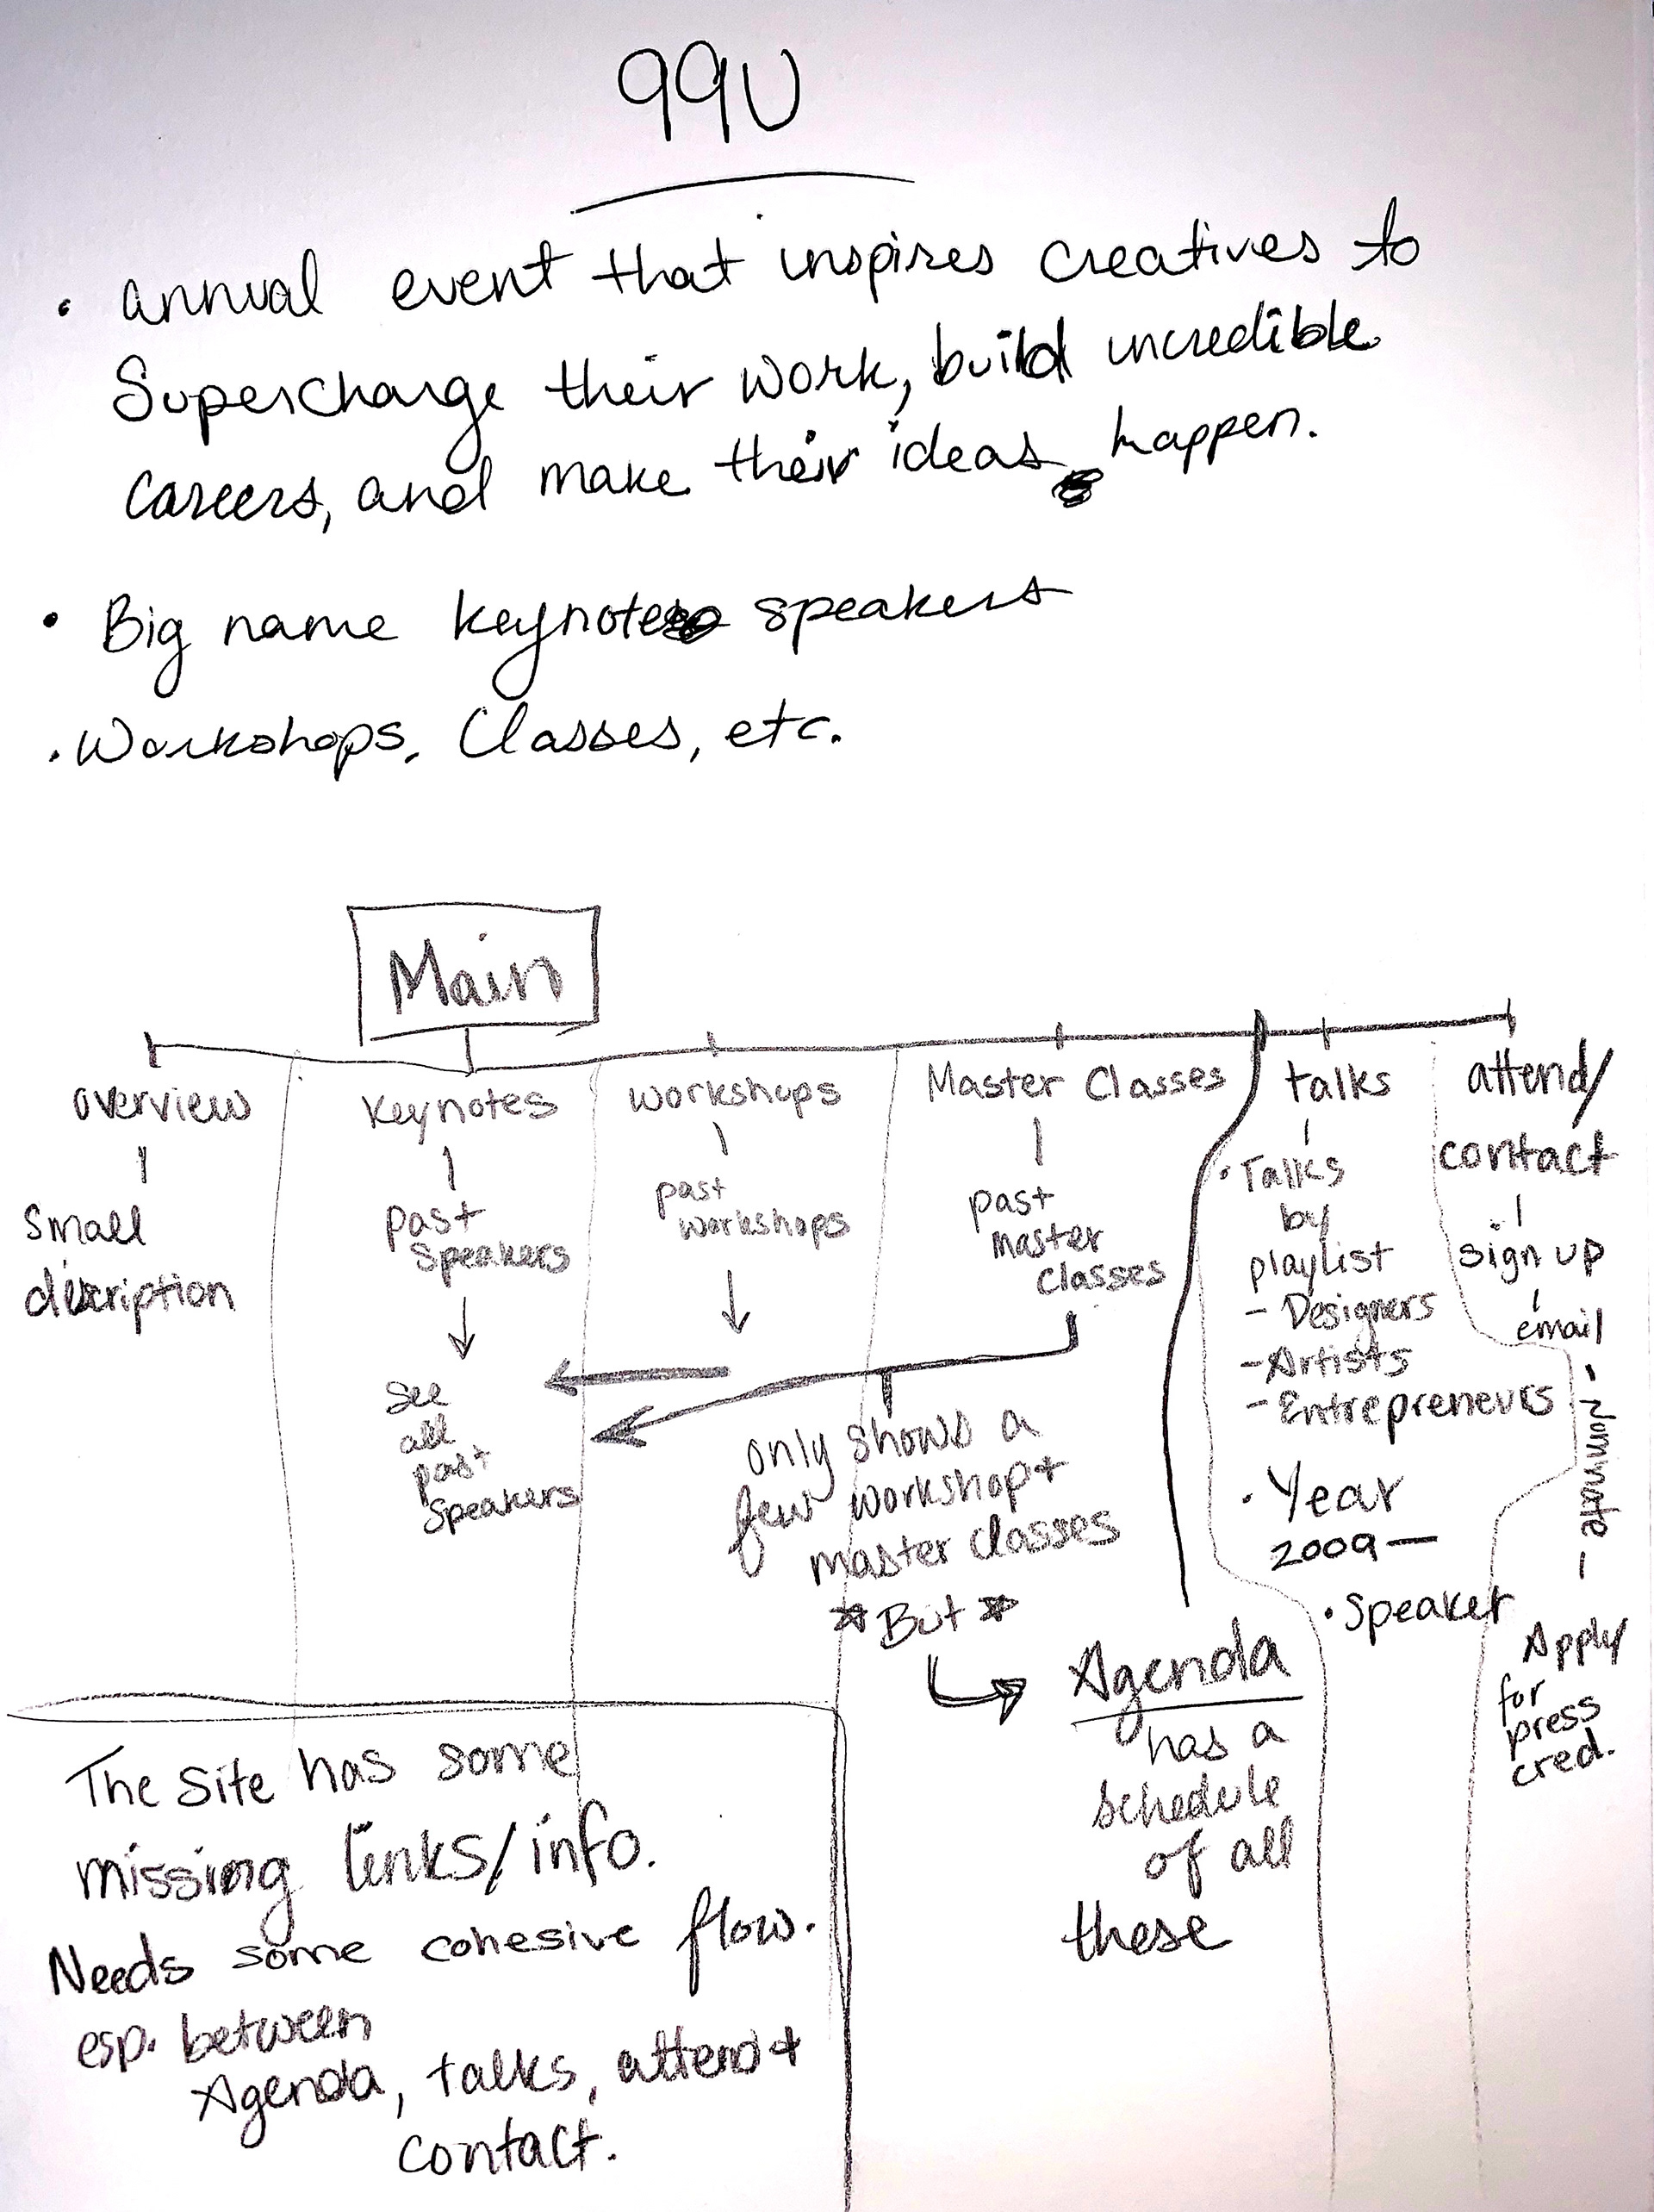 99U
• annual event that inspires creatives to
Supercharge their work, build incredible
careers, and make their ideas happen.
• Big name keynote speakers
• Workshops, Classes, etc.
Main
overview
Small
description
keynotes
past
speakers
see
all
past
speakers
workshops
past
workshops
Master Classes
past
master
classes
only shows a
few workshop +
master classes
* But *
Agenda
has a
schedule
of all
these
talks
• Talks
by
playlist
- Designers
- Artists
- Entrepreneurs
• Year
2009 —
• Speaker
attend/
contact
sign up
email
Nominate
Apply
for
press
cred.
The site has some
missing links/info.
Needs some cohesive flow.
esp. between
Agenda, talks, attend +
contact.